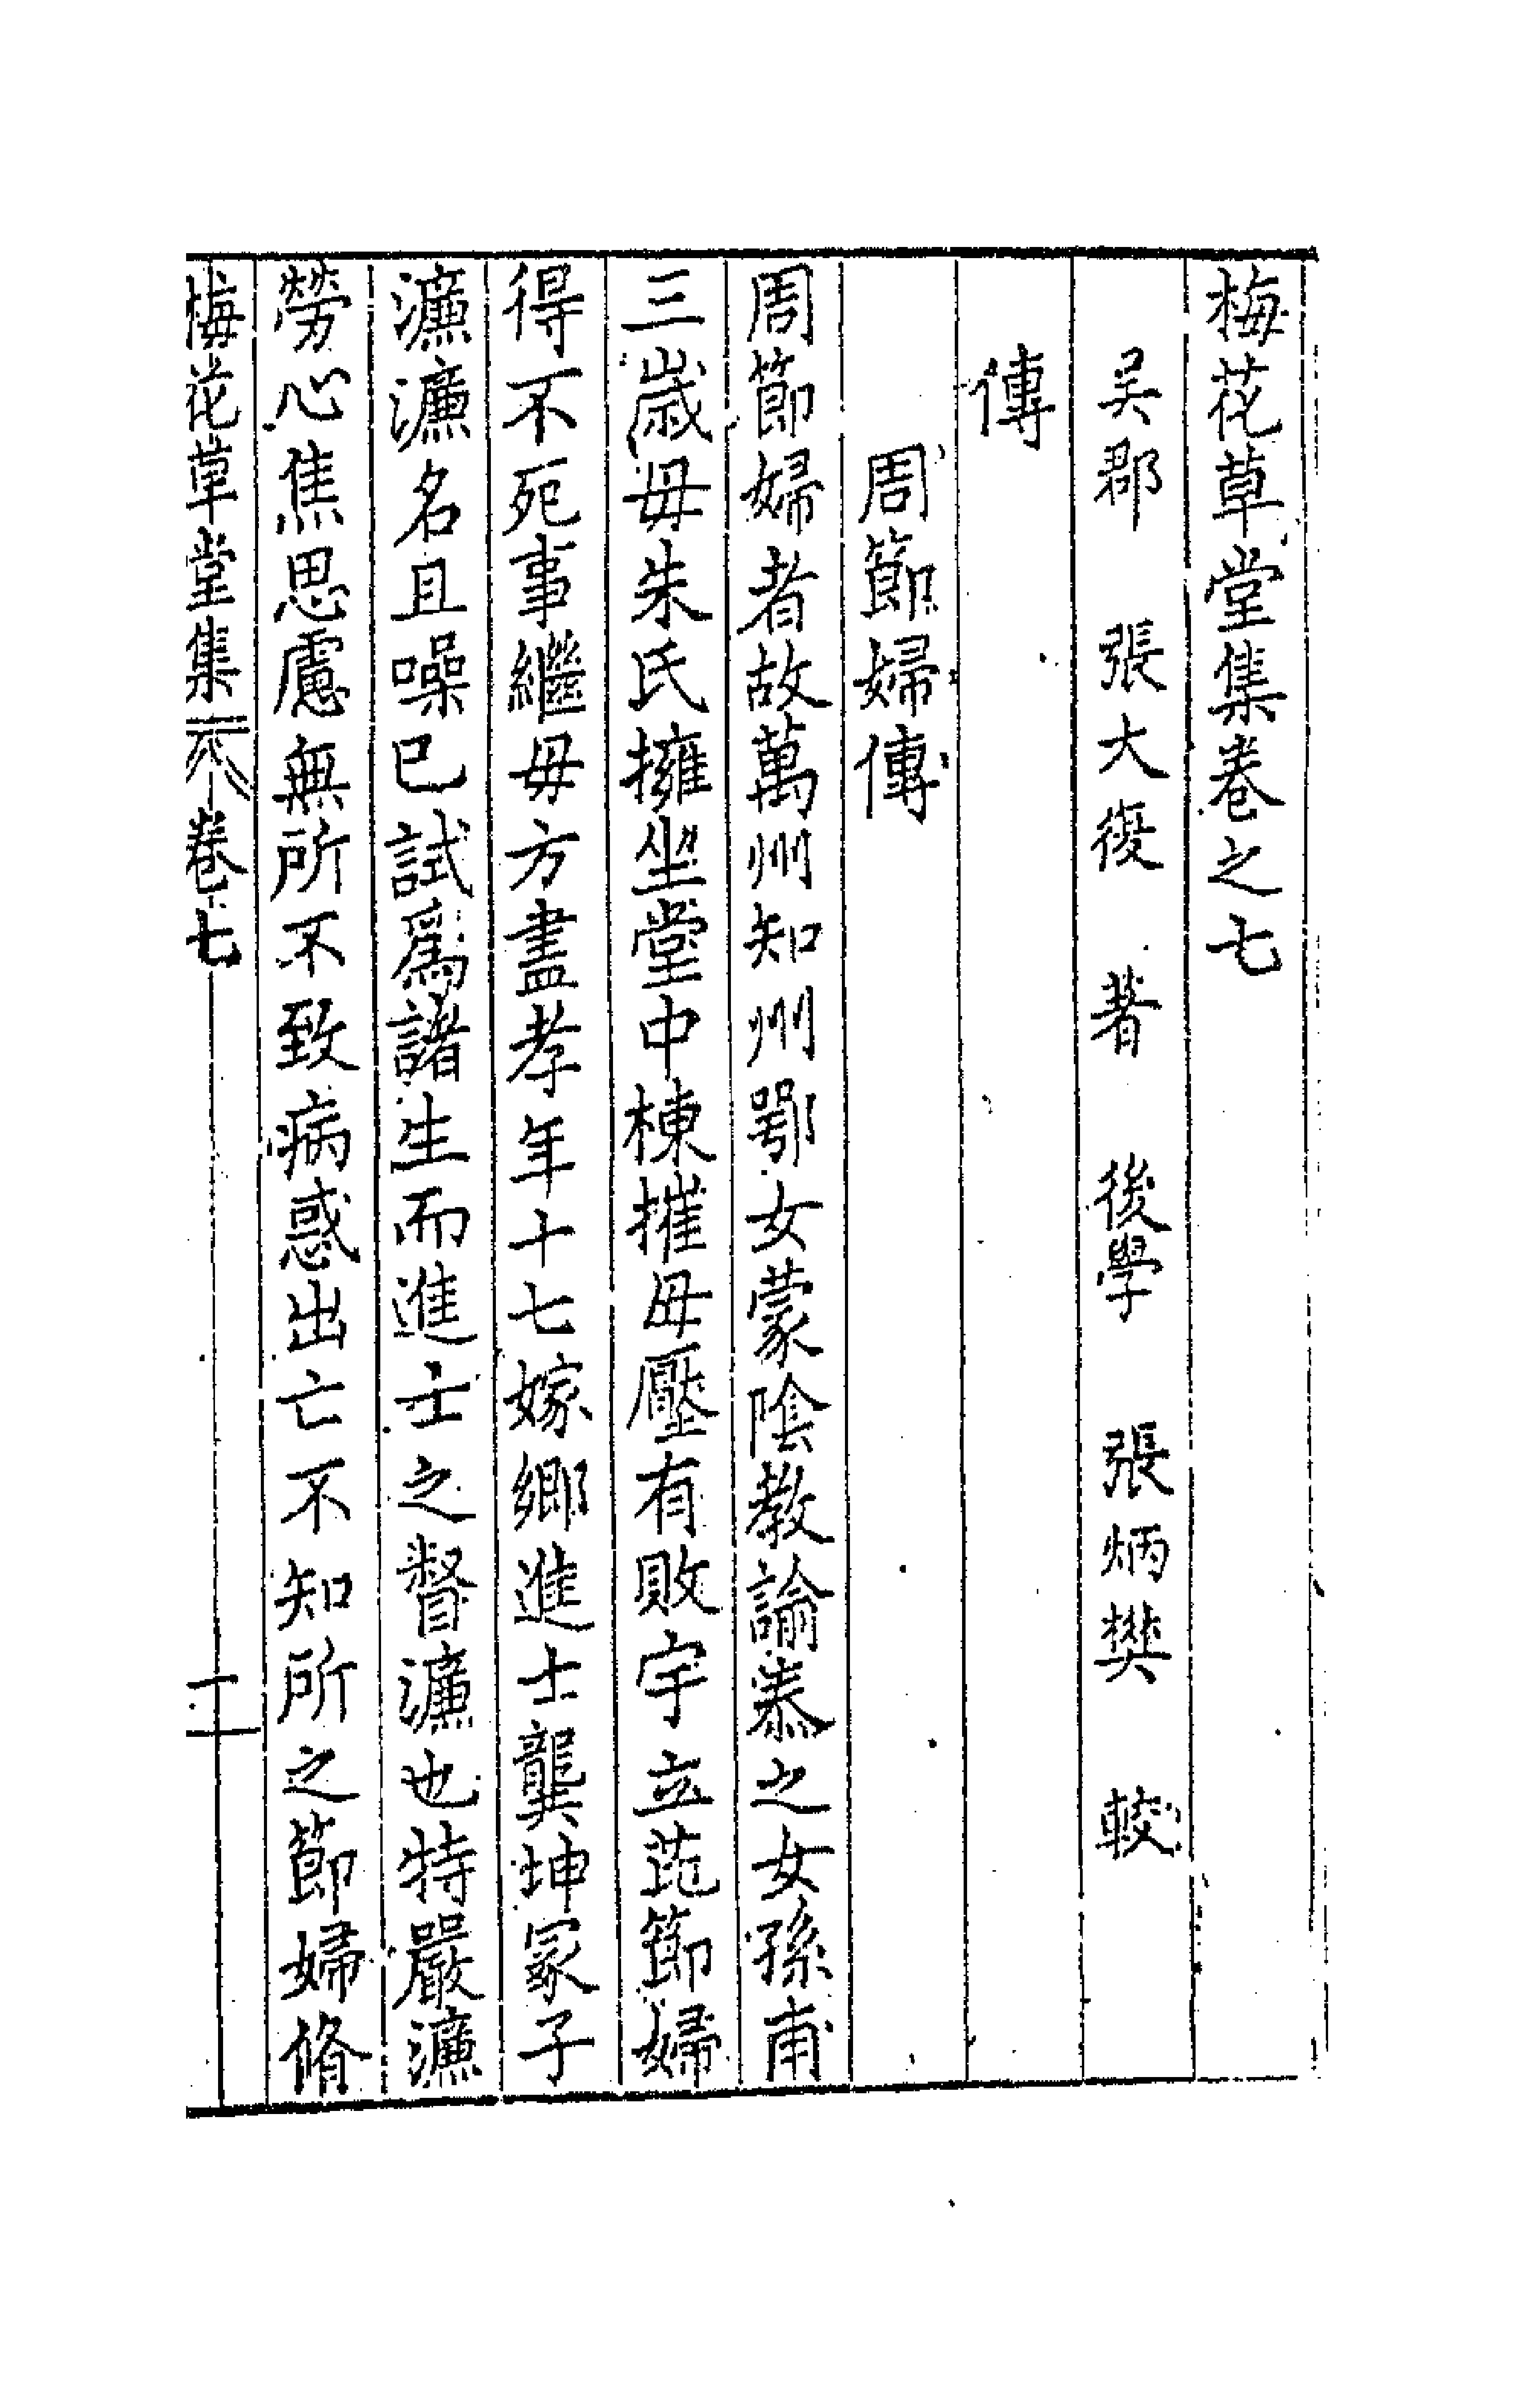 梅花草堂集卷之七
吳郡 張大復 著 後學 張炳樊 較
傳
周節婦傳
周節婦者故萬州知州鄂女蒙陰教諭泰之女孫甫
三歲母朱氏擁坐堂中棟摧母壓有敗宇立茈節婦
得不死事繼母方盡孝年十七嫁鄉進士龔坤冢子
濂濂名且噪已試爲諸生而進士之督濂也特嚴濂
勞心焦思慮無所不致病惑出亡不知所之節婦脩
梅花草堂集 卷七 一